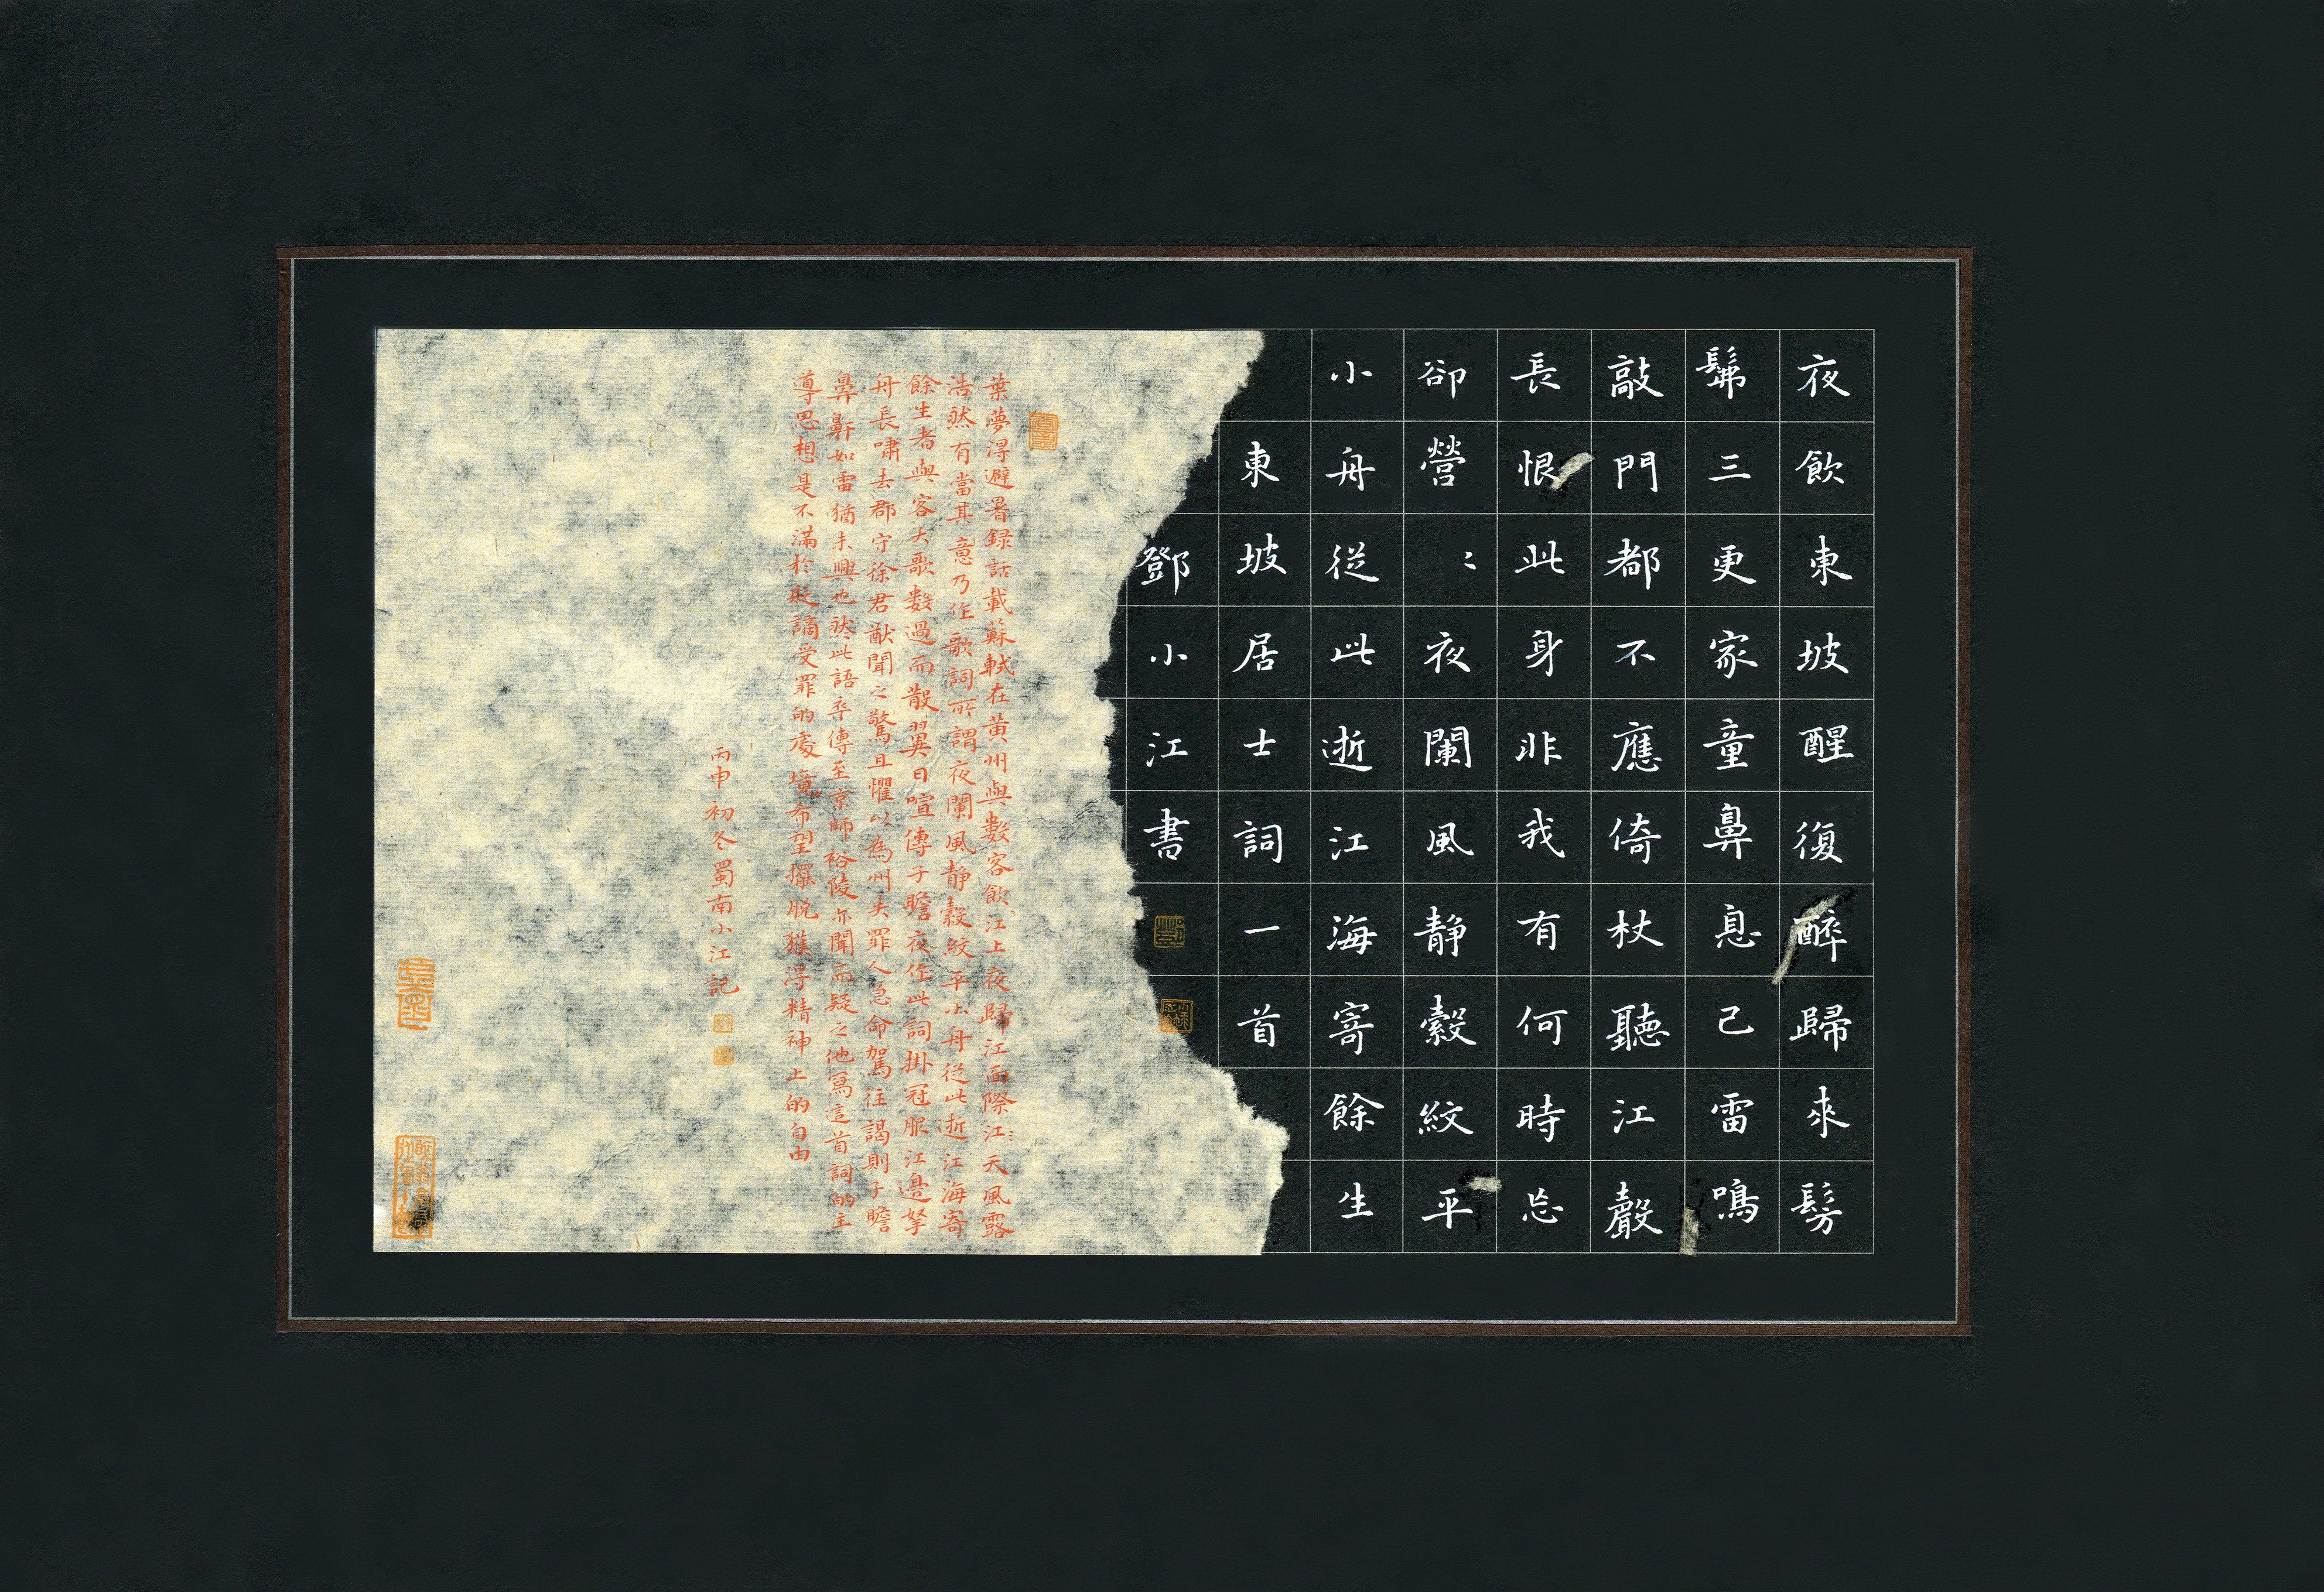 夜飲東坡醒復醉歸來髣
髴三更家童鼻息已雷鳴
敲門都不應倚杖聽江聲
長恨此身非我有何時忘
卻營〻夜闌風靜縠紋平
小舟從此逝江海寄餘生
東坡居士詞一首
鄧小江書
葉夢得避暑録話載蘇軾在黄州與數客飲江上夜歸江面際江〻天風露
浩然有當其意乃作歌詞所謂夜闌風静縠紋平小舟從此逝江海寄
餘生者與客大歌數過而散翼日喧傳子瞻夜作此詞掛冠服江邊拏
舟長嘯去郡守徐君猷聞之驚且懼以為州失罪人急命駕往謁則子瞻
鼻鼾如雷猶未興也然此語卒傳至京師裕陵亦聞而疑之他寫這首詞的主
導思想是不滿於貶謫受罪的處境希望擺脫獲得精神上的自由
丙申初冬蜀南小江記